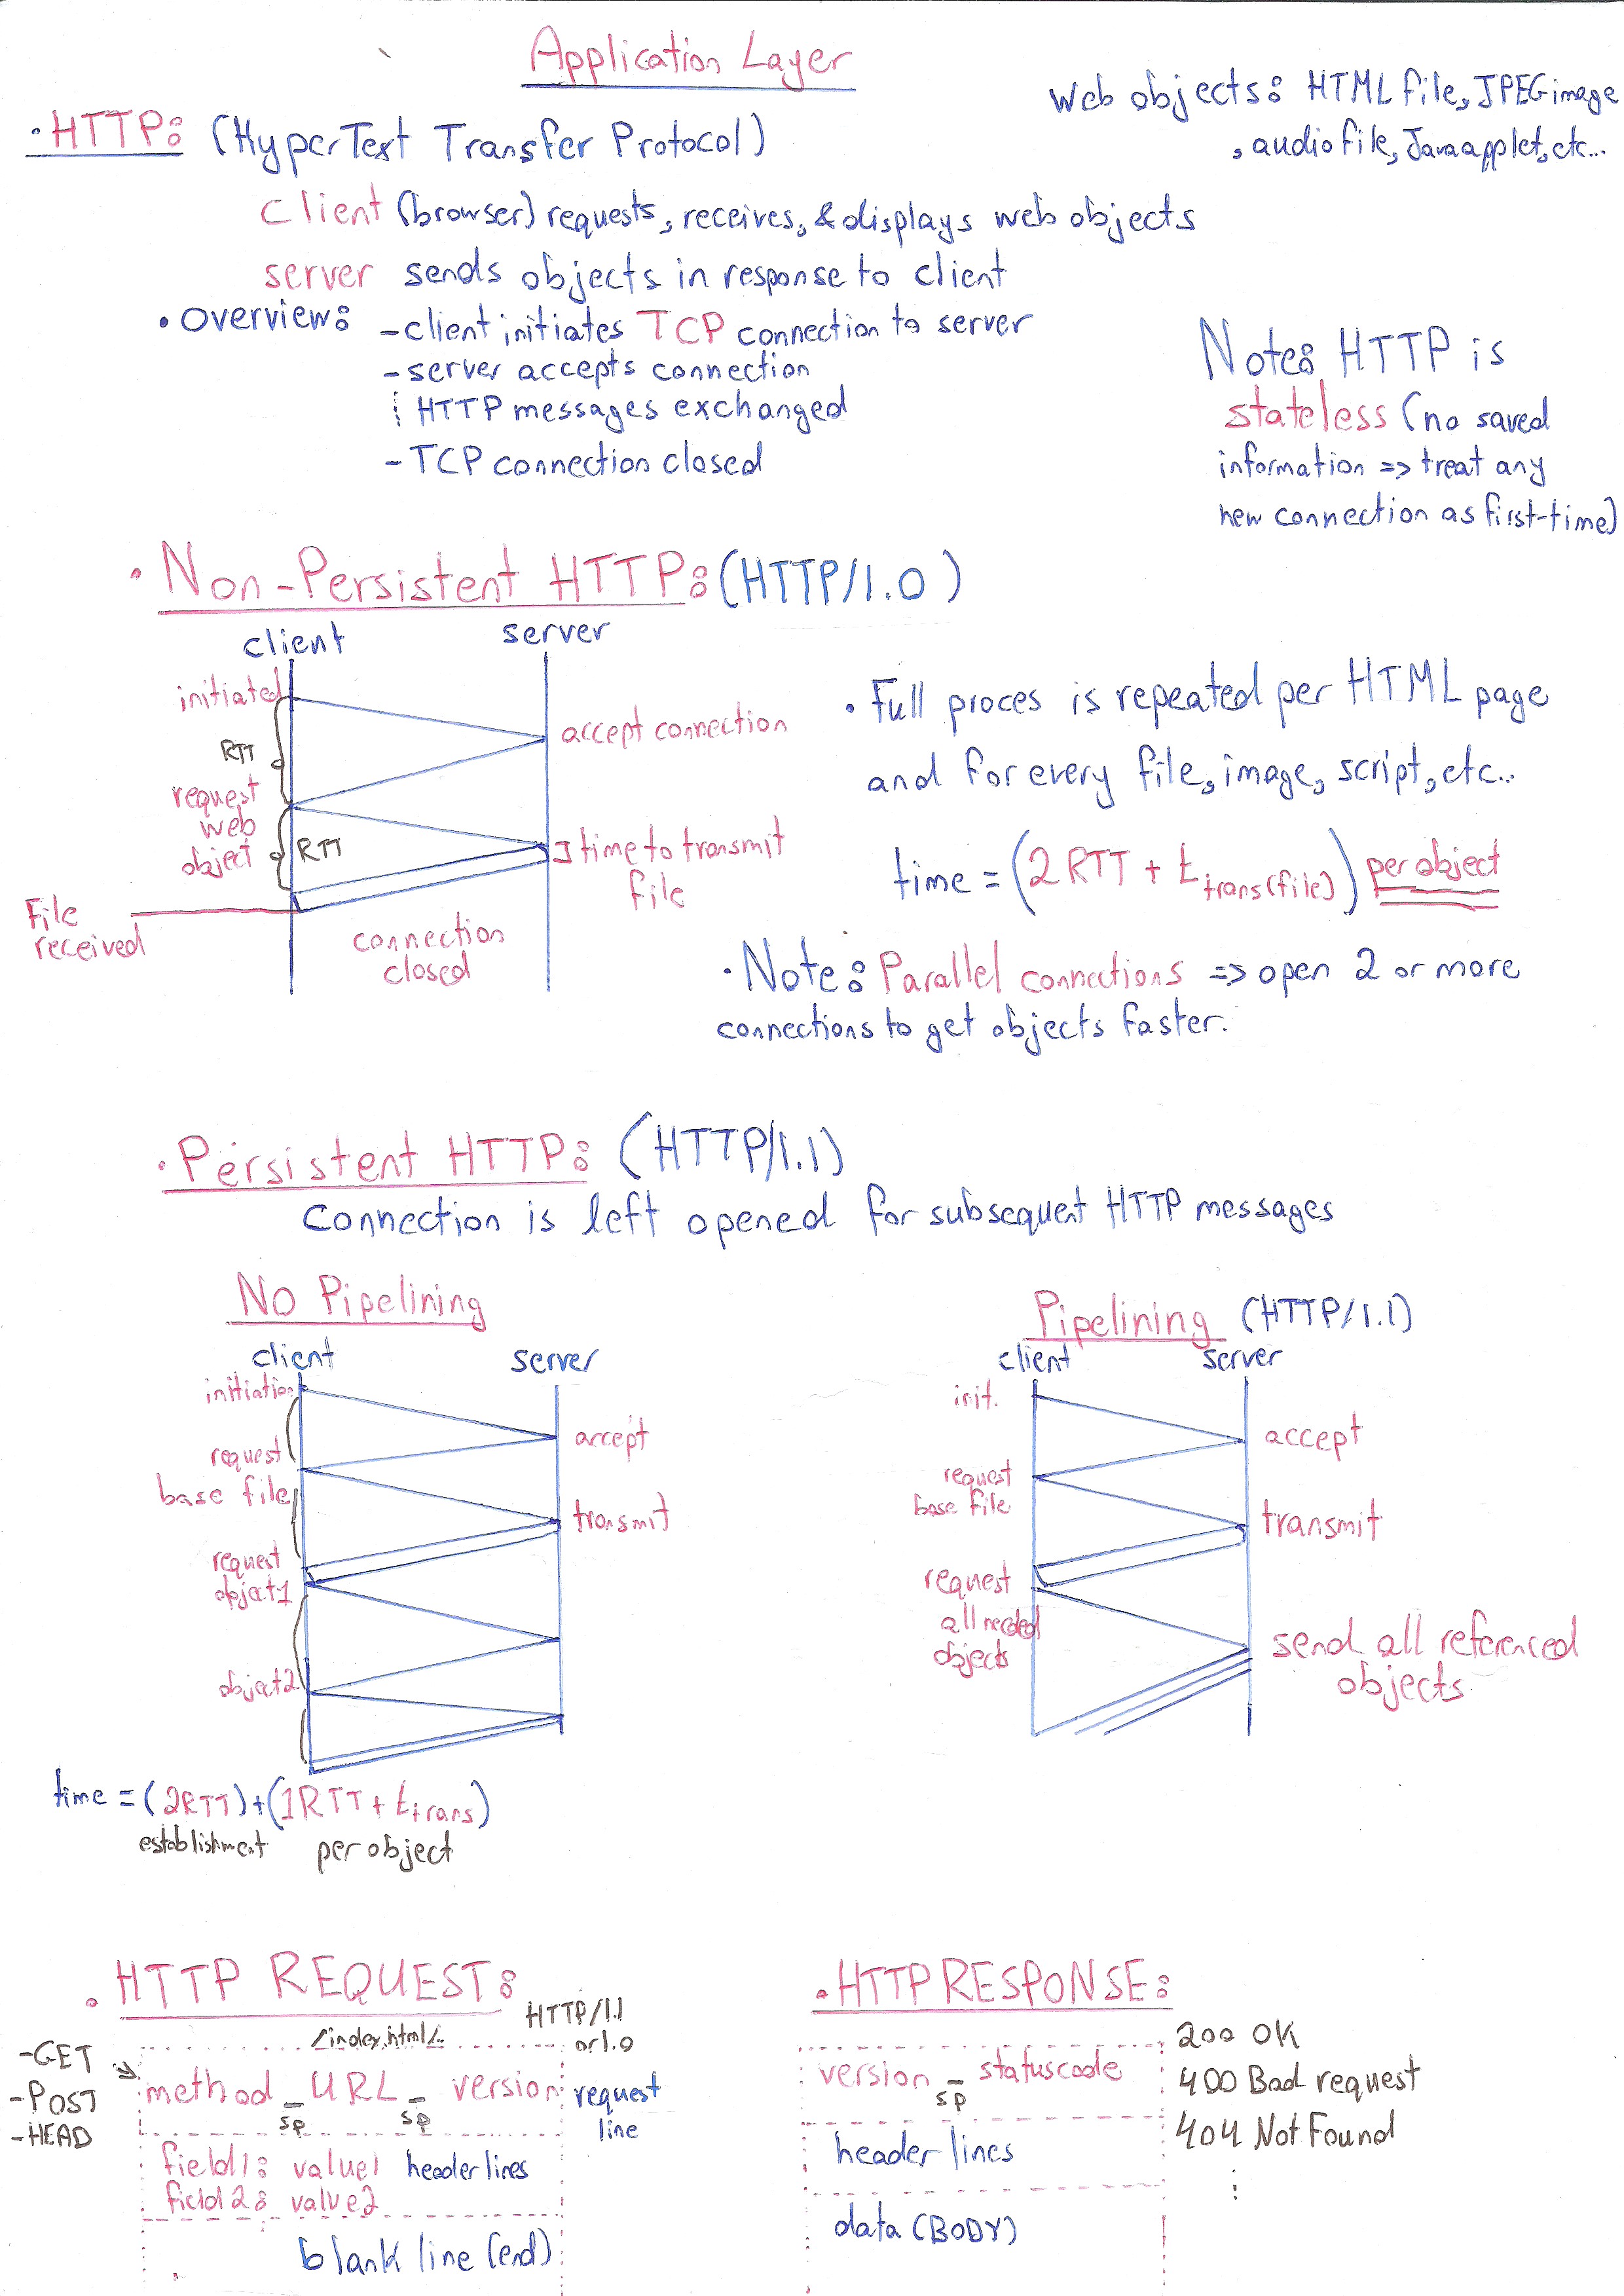 Application Layer
Web objects: HTML file, JPEG image
, audio file, Java applet, etc...
• HTTP: (HyperText Transfer Protocol)
client (browser) requests, receives, & displays web objects
server sends objects in response to client
• Overview: - client initiates TCP connection to server
- server accepts connection
⋮ HTTP messages exchanged
- TCP connection closed
Note: HTTP is
stateless (no saved
information => treat any
new connection as first-time)
• Non-Persistent HTTP: (HTTP/1.0)
client server
initiated
RTT
accept connection
request
web
object
RTT
time to transmit
file
File
received
connection
closed
• Full proces is repeated per HTML page
and for every file, image, script, etc...
time = (2 RTT + t trans(file)) per object
• Note: Parallel connections => open 2 or more
connections to get objects faster.
• Persistent HTTP: (HTTP/1.1)
Connection is left opened for subsequent HTTP messages
No Pipelining
client server
initiation
accept
request
base file
transmit
request
object1
object2
time = (2RTT) + (1RTT + t trans)
establishment per object
Pipelining (HTTP/1.1)
client server
init.
accept
request
base file
transmit
request
all needed
objects
send all referenced
objects
• HTTP REQUEST:
/index.html/..
HTTP/1.1
or 1.0
-GET
-POST
-HEAD
method _ URL _ version
sp sp
request
line
field1: value1 header lines
field2: value2
blank line (end)
• HTTP RESPONSE:
version _ statuscode
sp
header lines
data (BODY)
200 OK
400 Bad request
404 Not Found
⋮